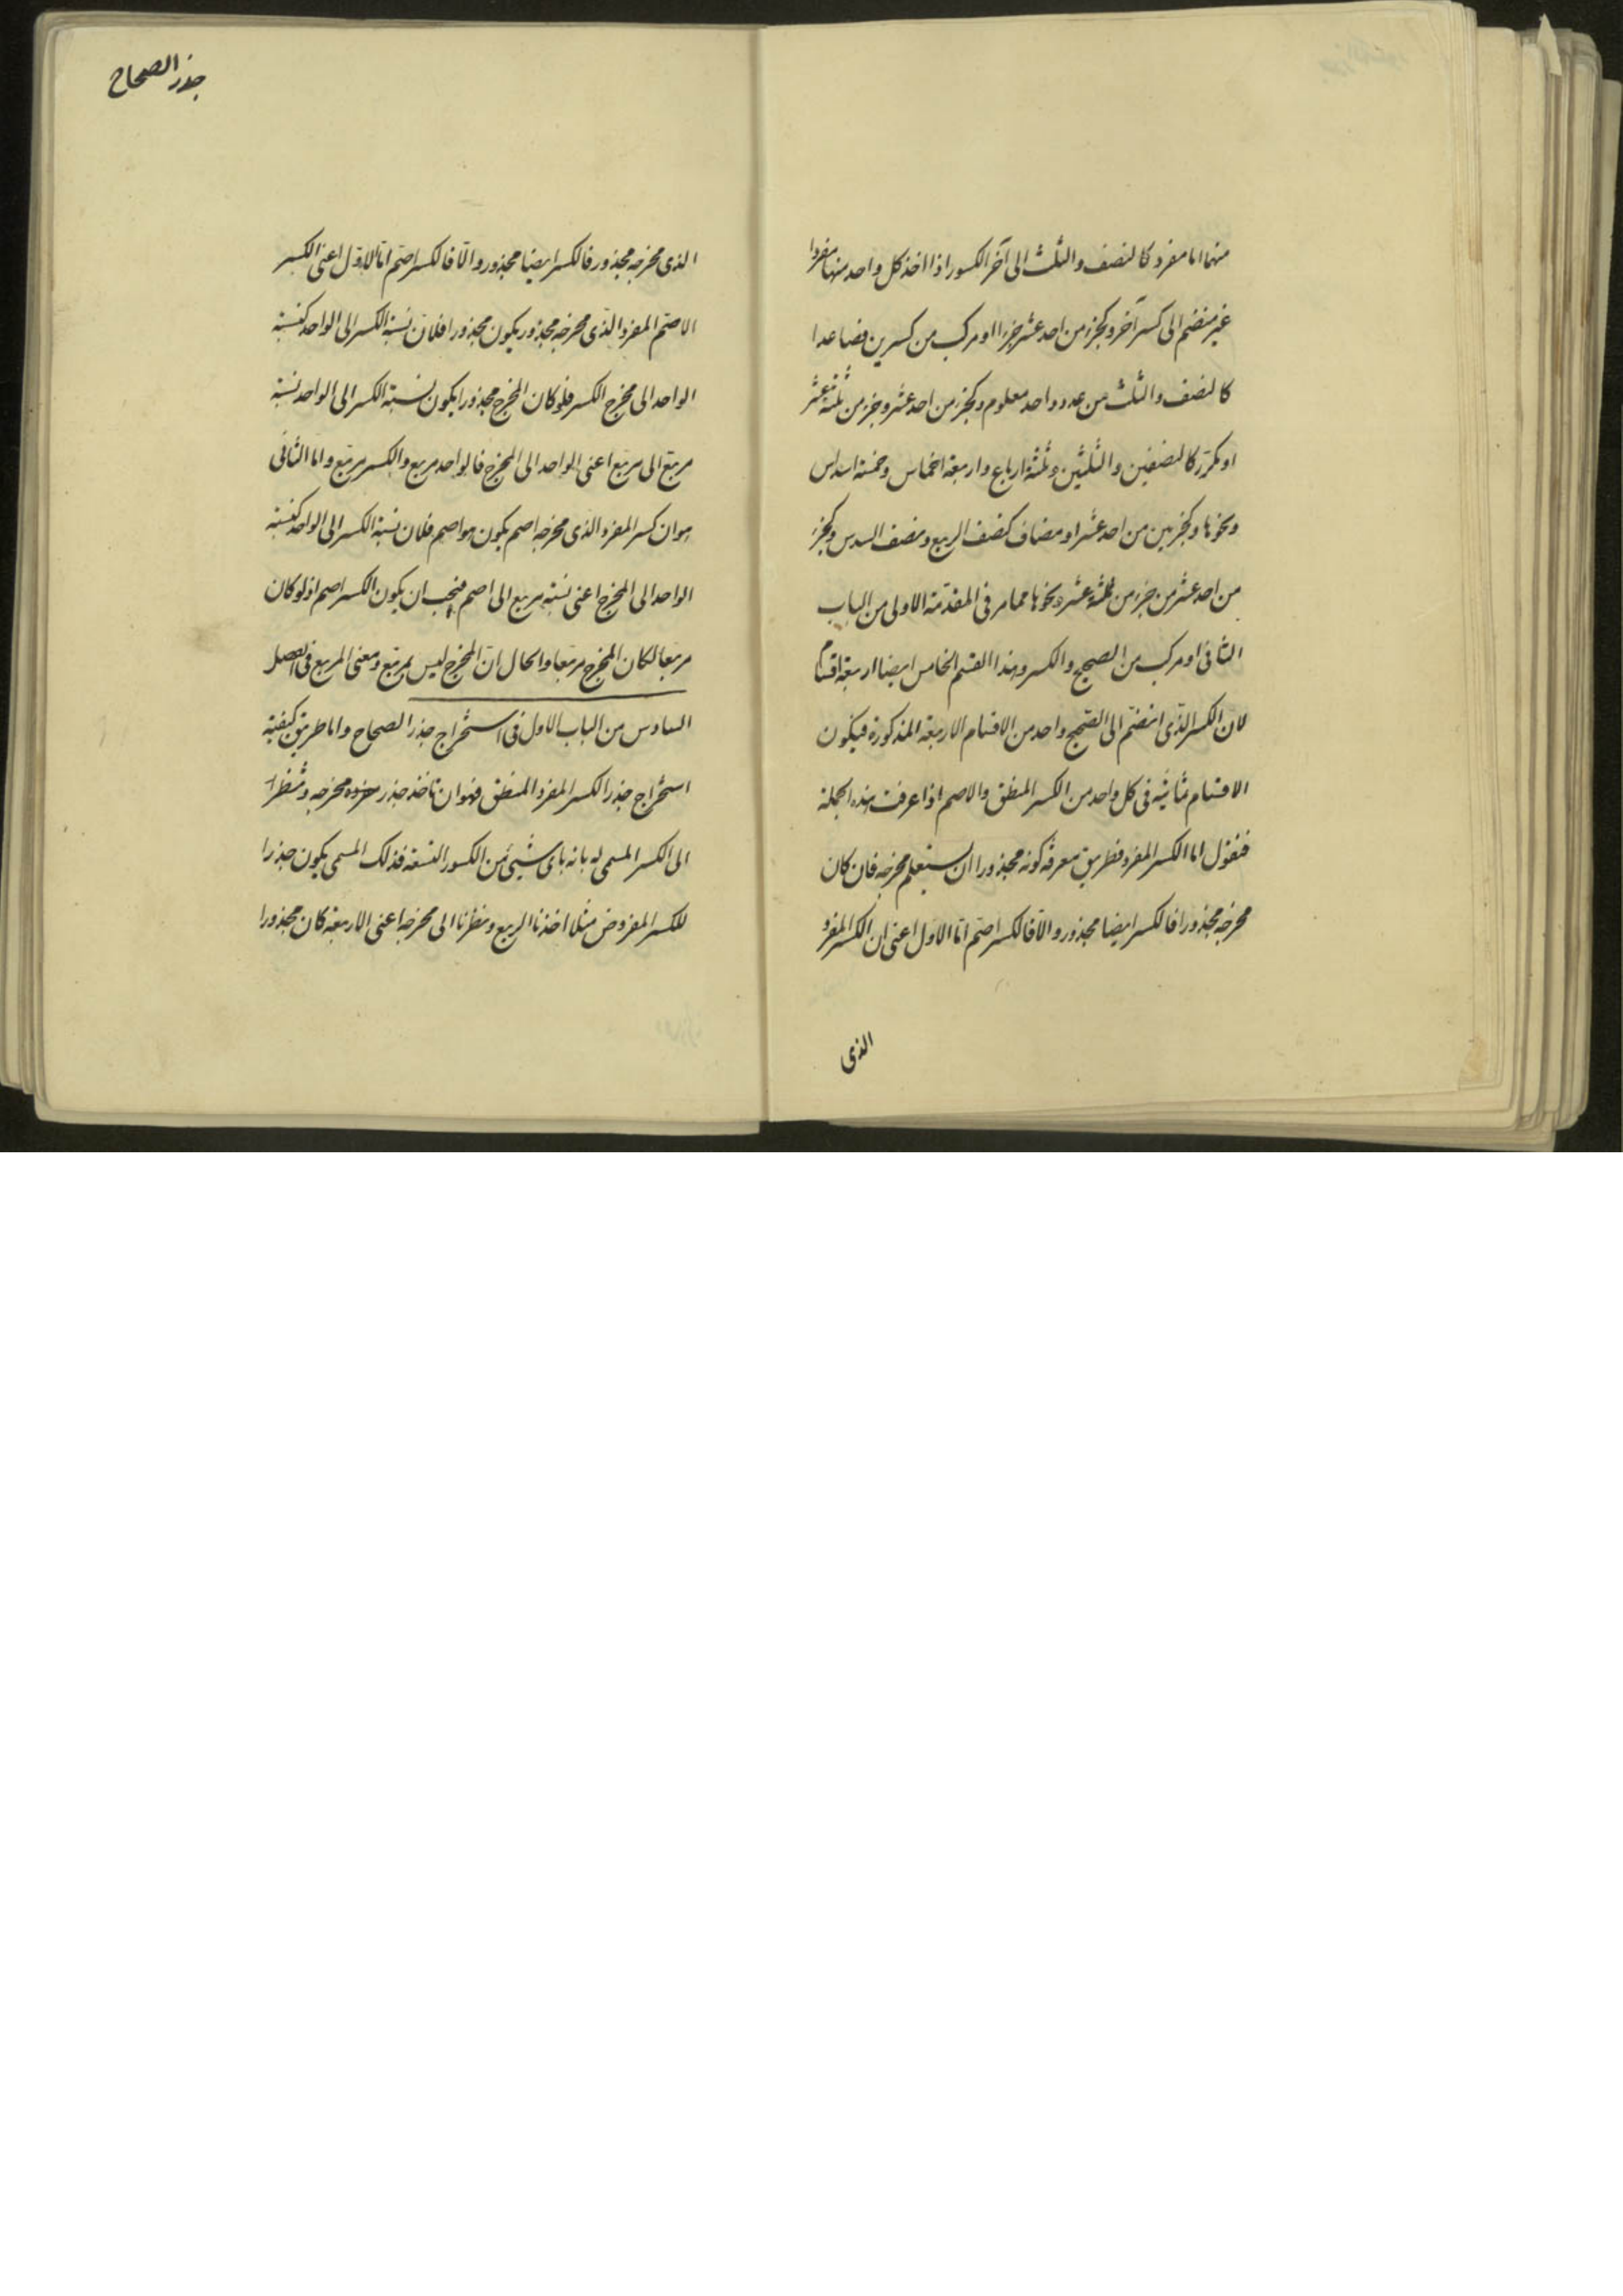 منهما اما مفرد كالنصف والثلث الى آخر الكسور اذا اخذ كل واحد منها مفردا
غير منضم الى كسر آخر وكجزء من احد عشر جزءا او مركب من كسرين فصاعدا
كالنصف والثلث من عدد واحد معلوم وكجزء من احد عشر وجزء من ثلثة عشر
او مكرر كالنصفين والثلثين وثلثة ارباع واربعة اخماس وخمسة اسداس
ونحوها وكجزئين من احد عشر او مضاف كنصف الربع ونصف السدس وكجزء
من احد عشر من جزء من ثلثة عشر ونحوها مما مر فى المقدمة الاولى من الباب
الثانى او مركب من الصحيح والكسر وهذا القسم الخامس ايضا اربعة اقسام
لان الكسر الذى انضم الى الصحيح واحد من الاقسام الاربعة المذكورة فيكون
الاقسام ثمانية فى كل واحد من الكسر المنطق والاصم اذا عرفت هذه الجملة
فنقول اما الكسر المفرد فطريق معرفة كونه مجذورا ان يستعلم مخرجه فان كان
مخرجه مجذورا فالكسر ايضا مجذور والّا فالكسر اصم امّا الاول اعنى ان الكسر المفرد
الذى
جذر الصحاح
الذى مخرجه مجذور فالكسر ايضا مجذور والّا فالكسر اصم امّا الاول اعنى الكسر
الاصم المفرد الذى مخرجه مجذور يكون مجذورا فلان نسبة الكسر الى الواحد كنسبة
الواحد الى مخرج الكسر فلو كان المخرج مجذورا يكون نسبة الكسر الى الواحد نسبة
مربع الى مربع اعنى الواحد الى المخرج فالواحد مربع والكسر مربع واما الثانى
هو ان كسر المفرد الذى مخرجه اصم يكون هو اصم فلان نسبة الكسر الى الواحد كنسبة
الواحد الى المخرج اعنى نسبة مربع الى اصم فيجب ان يكون الكسر اصم اذ لو كان
مربعا لكان المخرج مربعا والحال ان المخرج ليس بمربع ومعنى المربع فى الفصل
السادس من الباب الاول فى استخراج جذر الصحاح واما طريق كيفية
استخراج جذر الكسر المفرد المنطق فهو ان تأخذ جذر مخرجه وتنظر
الى الكسر المسمى له بانه باى شيئ من الكسور التسعة فذلك المسمى يكون جذرا
للكسر المفروض مثلا اخذنا الربع ونظرنا الى مخرجه اعنى الاربعة كان مجذورا